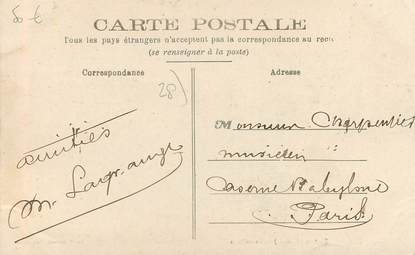 5 €
CARTE POSTALE
Tous les pays étrangers n'acceptent pas la correspondance au recto
(se renseigner à la poste)
Correspondance
Adresse
28)
amitiés
M. Lagrange
Monsieur Charpentier
musicien
Caserne Babylone
Paris